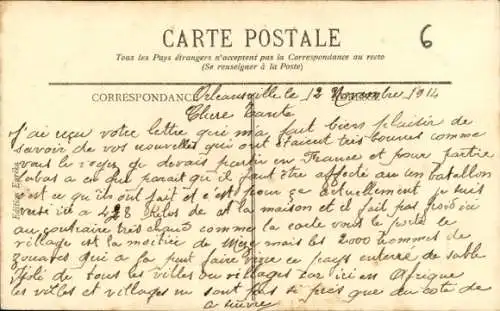 CARTE POSTALE
6
Tous les Pays étrangers n'acceptent pas la Correspondance au recto
(Se renseigner à la Poste)
CORRESPONDANCE
Orléansville le 12 Novembre 1914
Chere Tante
J'ai reçu votre lettre qui m'a fait bien plaisir de
savoir de vos nouvelles qui ont étaient très bonnes comme
vous le je devais partir en France et pour partir
labas a ce que parait qu'il faut être affecté au un batallon
est ce qu'ils ont fait et c'est pour ça actuellement je suis
ici a 428 Kilos de la maison et il fait pas froid ici
au contraire très chaud comme la carte vous le porte le
village est la moitiée de mais les 2000 hommes de
zouaves qui a ça peut faire ce pays enterré de sable
de tous les villes ou villages car ici en Afrique
les villes et villages ne sont pas si près que du coté de
a suivre